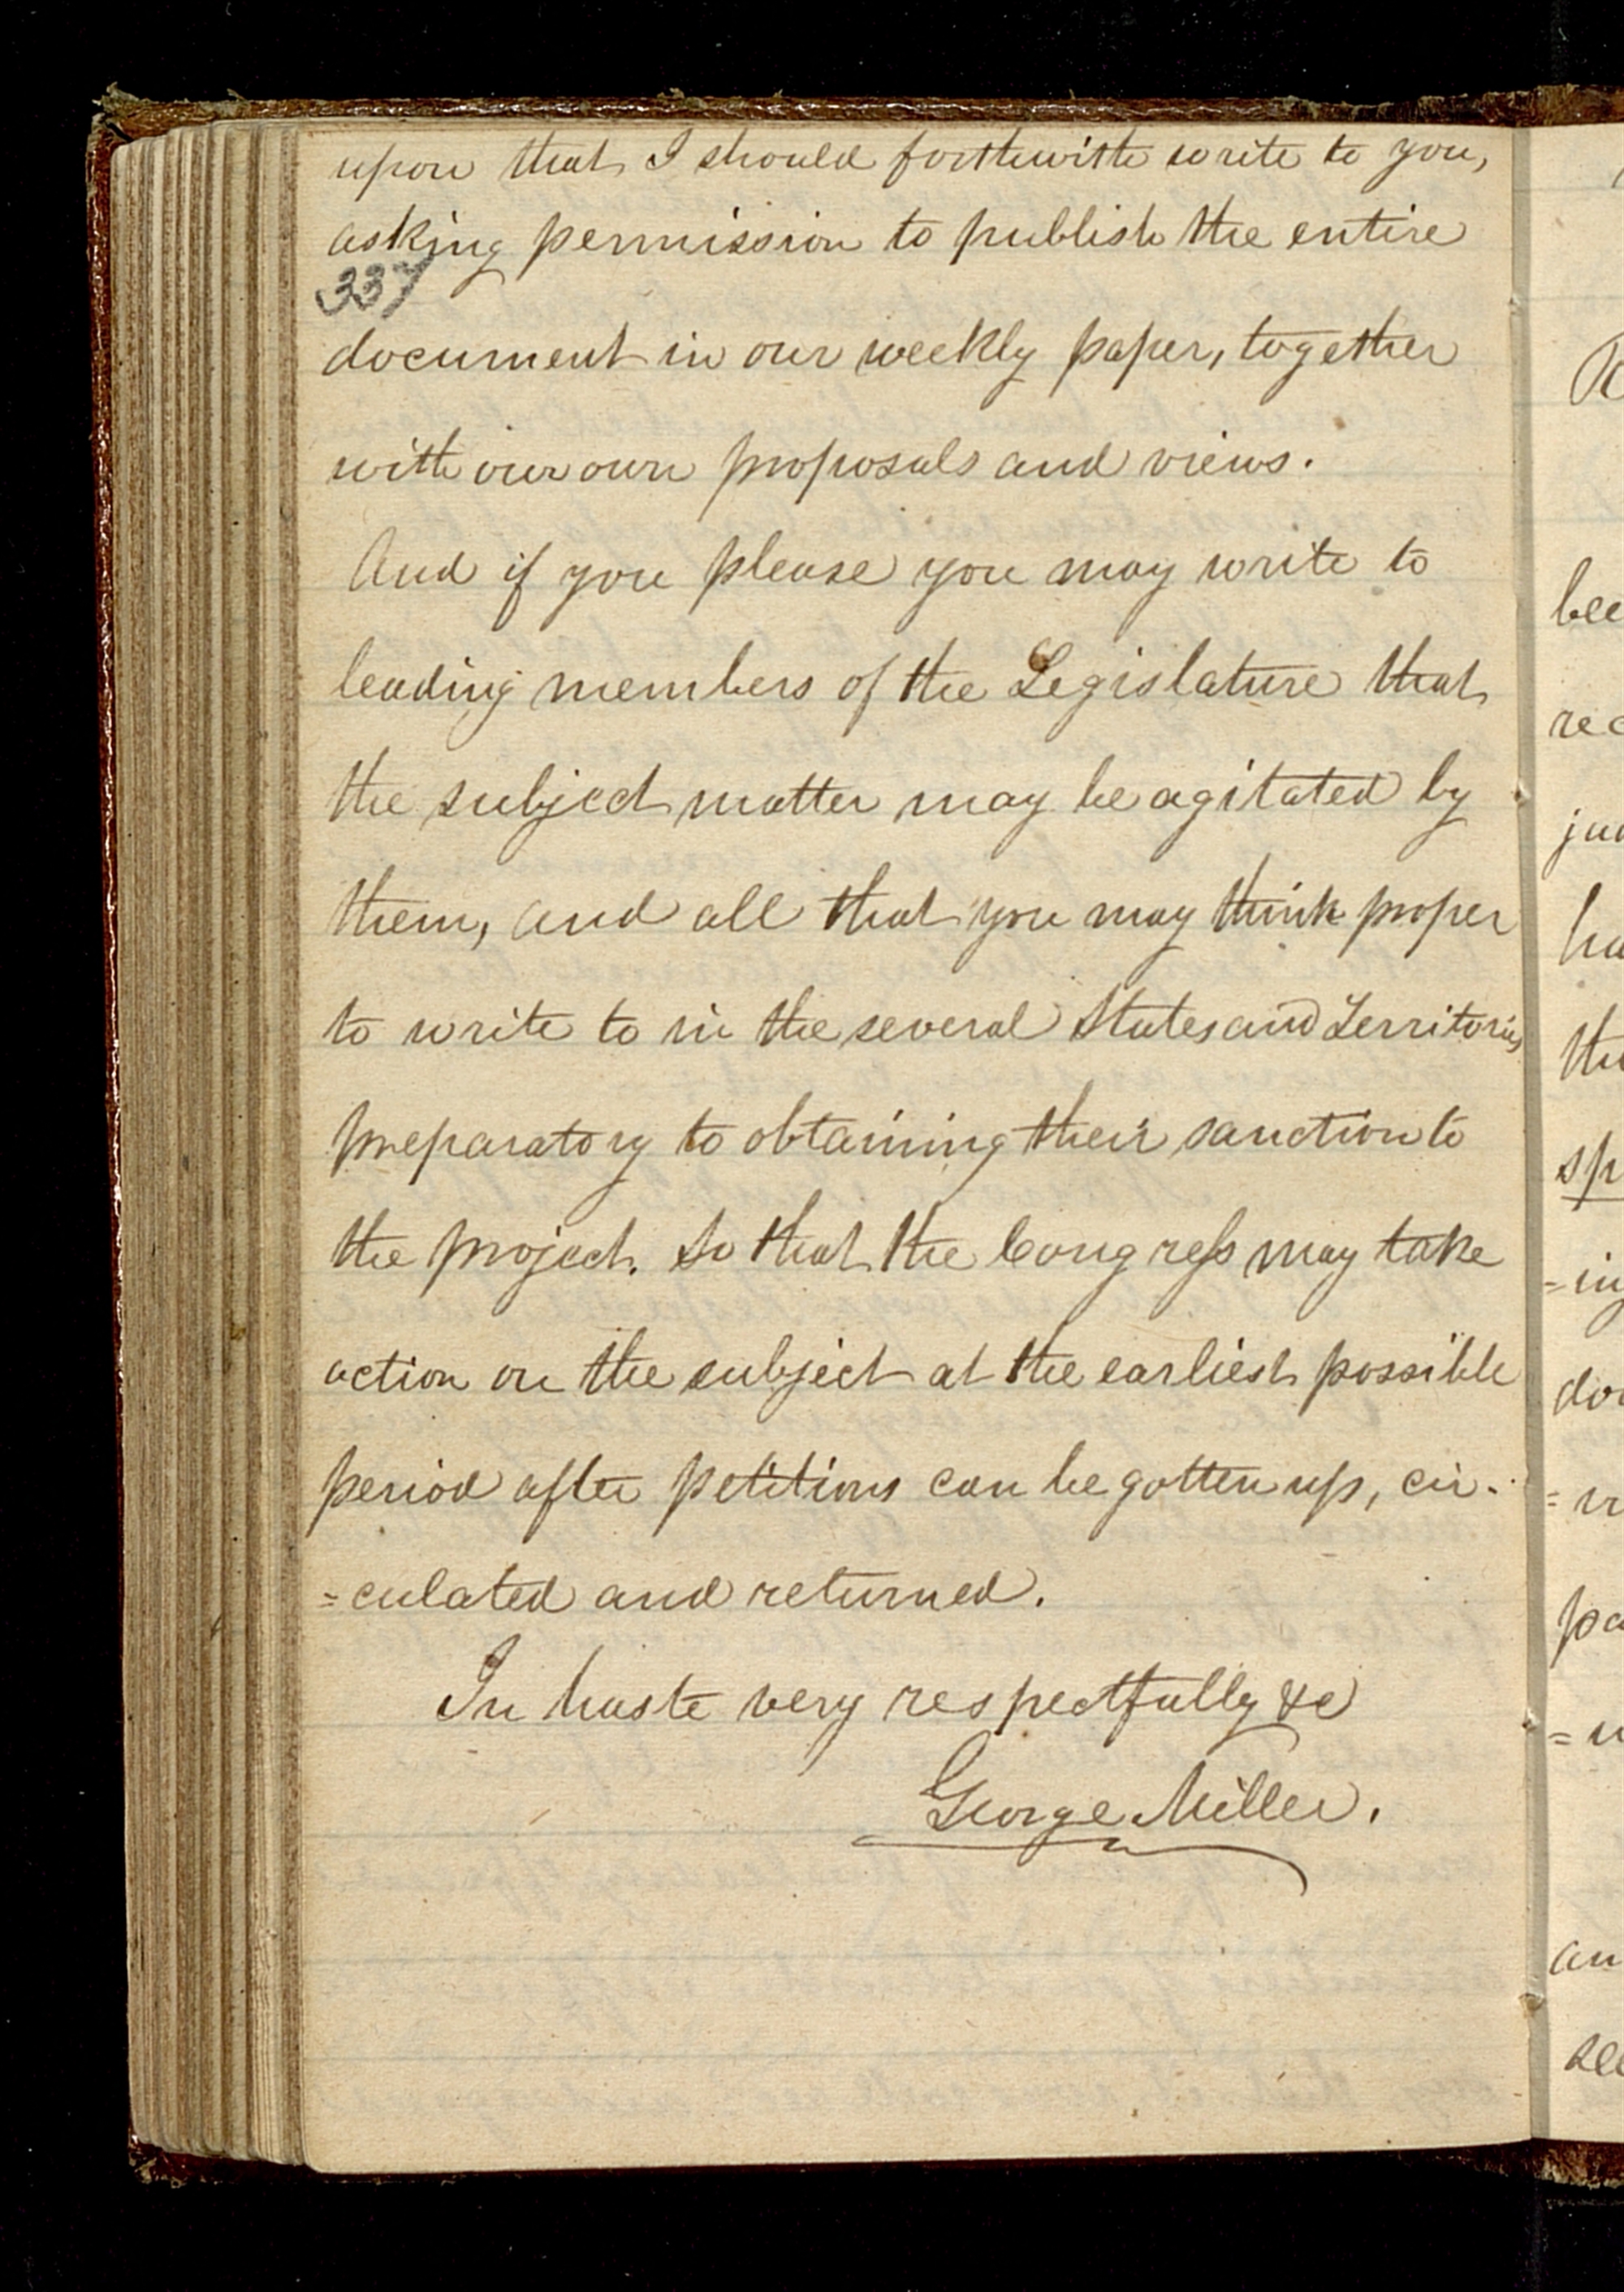 upon that I should forthwith write to you,
asking permission to publish the entire
337
document in our weekly paper, together
with our own proposals and views.
And if you please you may write to
leading members of the Legislature that
the subject matter may be agitated by
them, and all that you may think proper
to write to in the several States and Territories
preparatory to obtaining their sanction to
the project. So that the Congress may take
action on the subject at the earliest possible
period after petitions can be gotten up, cir-
=culated and returned.
In haste very respectfully &c
George Miller.
bee
rec
jud
ha
the
sp
=in
do
pa
=u
an
see